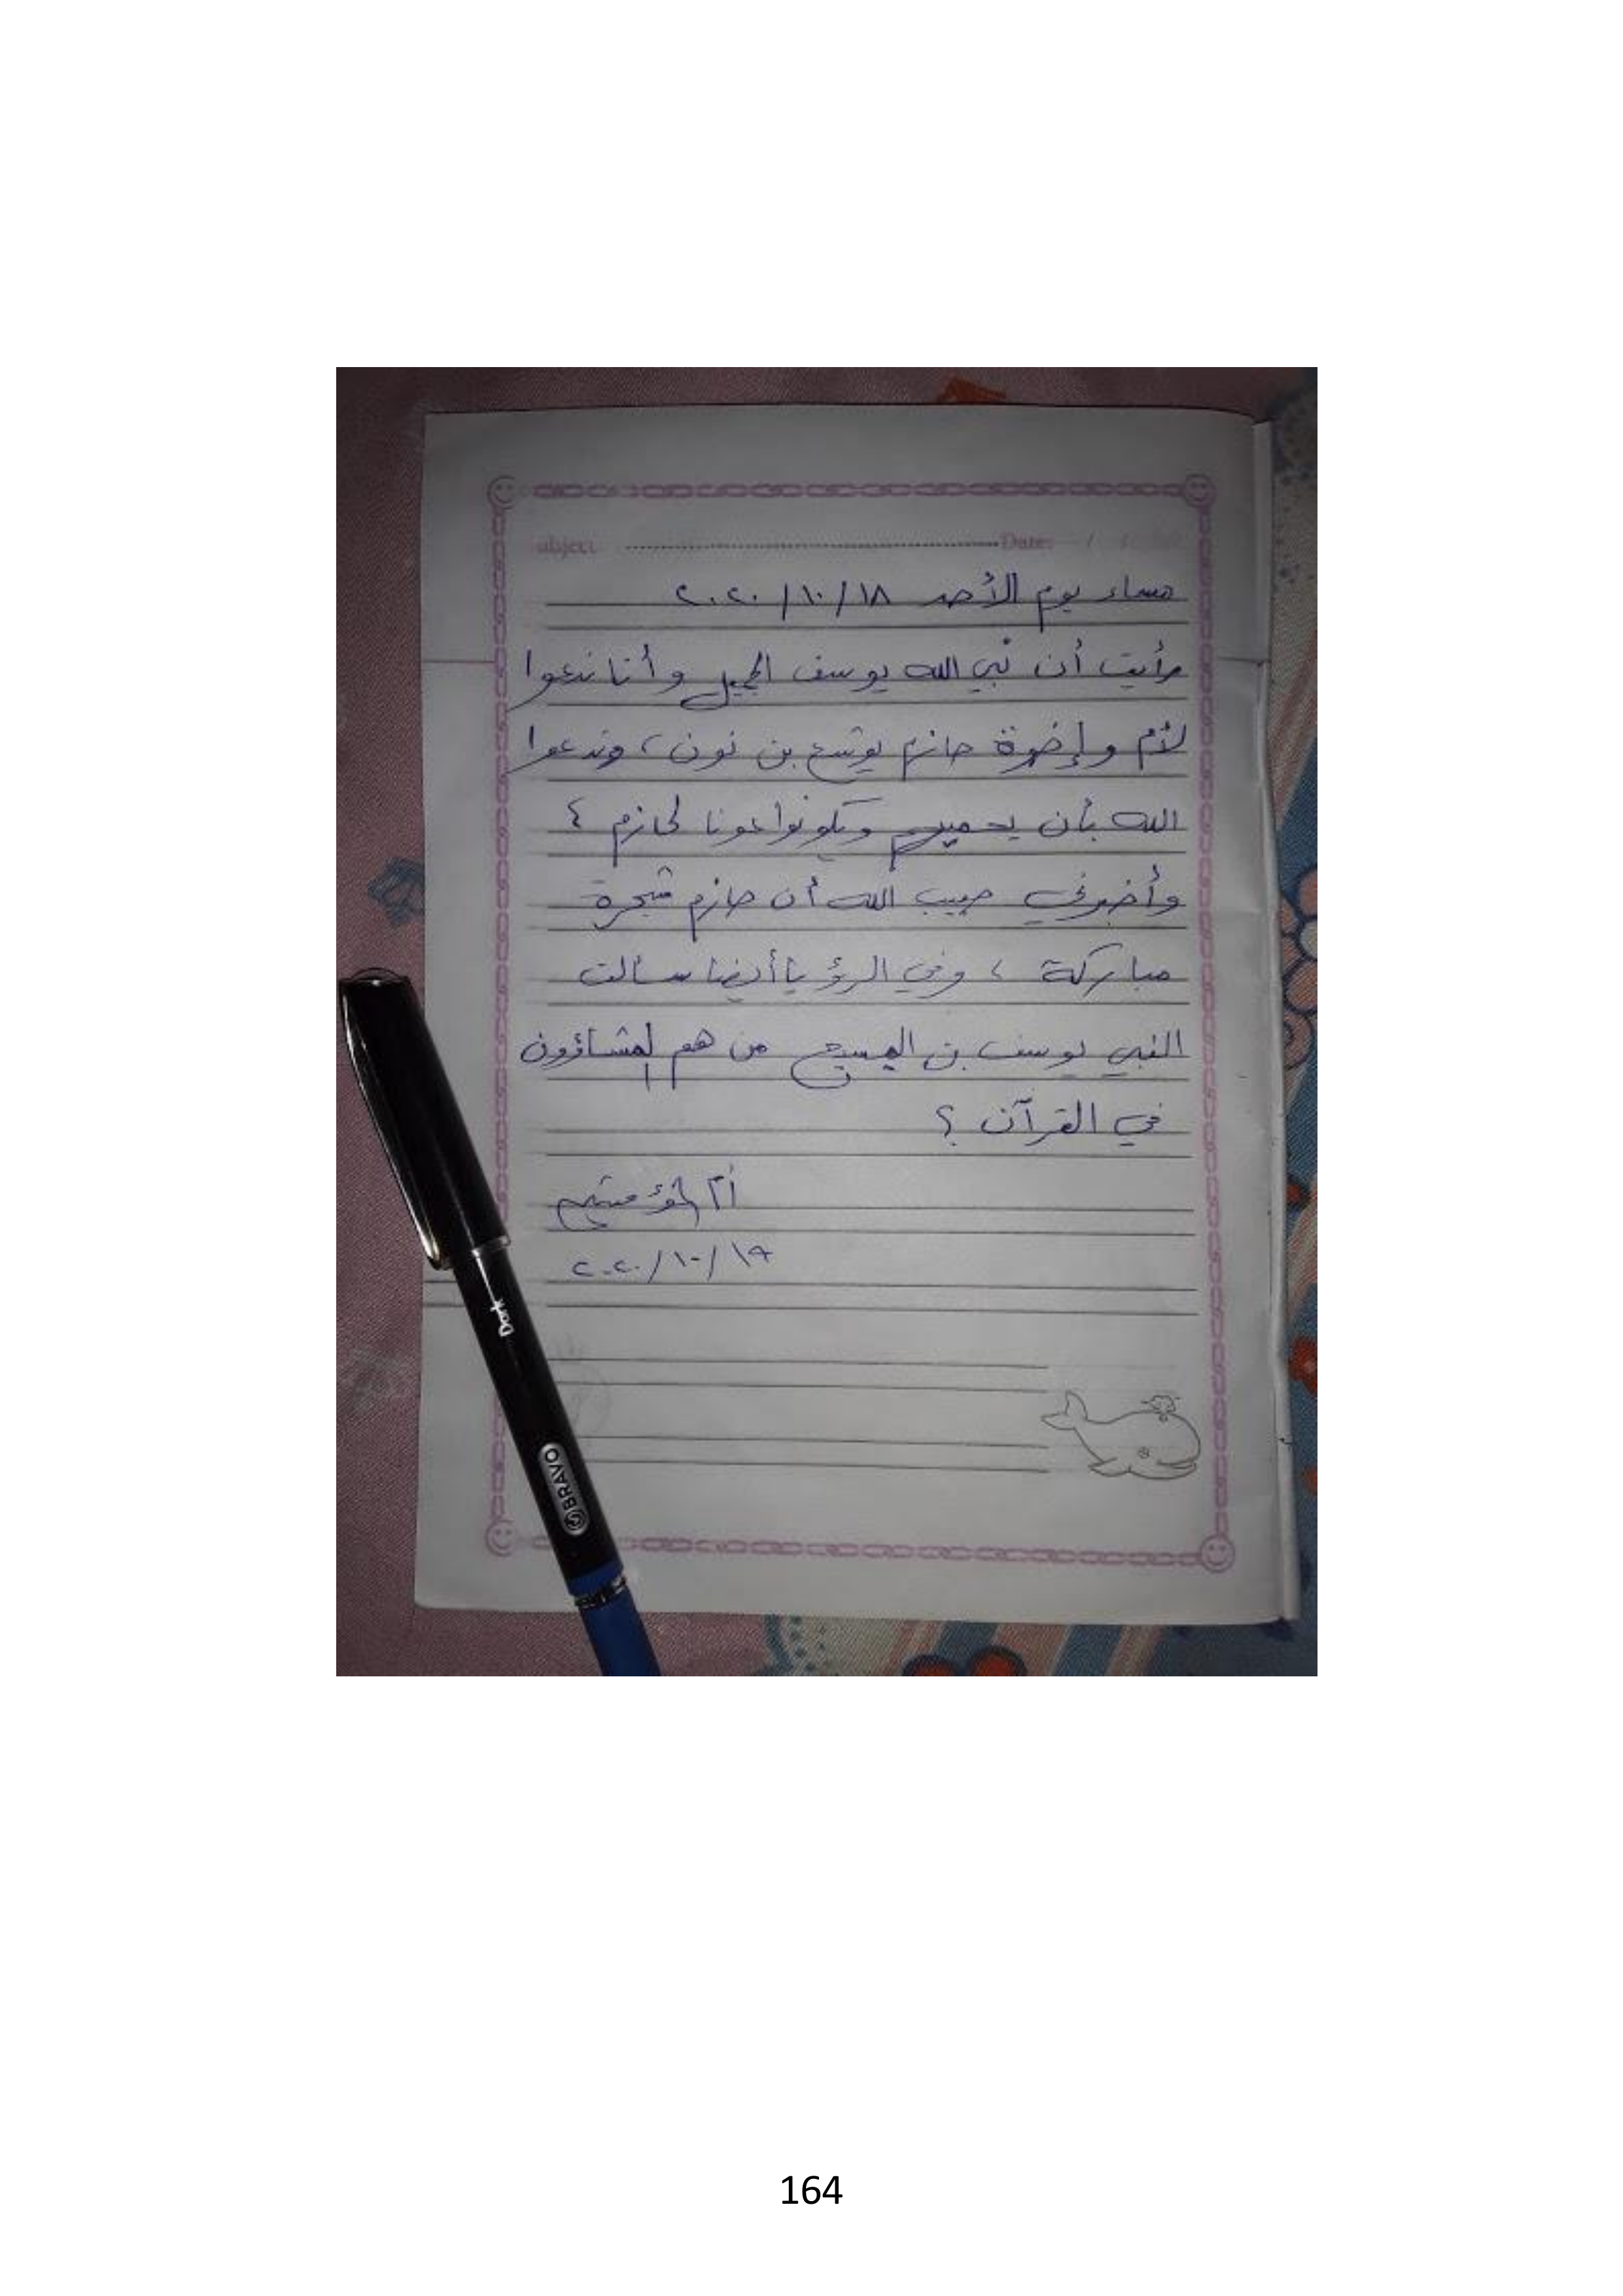 ubject ........ Date: / /
مساء يوم الأحد ١٨/١٠/٢٠٢٠
رأيت أن نبي الله يوسف الجميل وأنا ندعوا
لأم وإخوة حازم يوشع بن نون، وندعوا
الله بأن يحميهم ويكونوا عونا لحازم ؛
وأخبرني حبيب الله أن حازم شجرة
مباركة ، وفي الرؤيا أيضا سألت
النبي يوسف بن المسيح من هم المشاؤون
في القرآن ؟
أم المؤمنين
١٩/١٠/٢٠٢٠
Dark
BRAVO
164